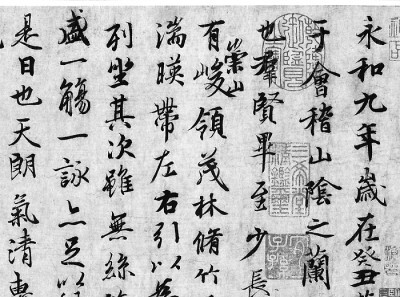 永和九年歲在癸丑
于會稽山陰之蘭
也羣賢畢至少長
有崇山峻領茂林脩竹
湍暎帶左右引以
列坐其次雖無絲
盛一觴一詠亦足以
是日也天朗氣清惠